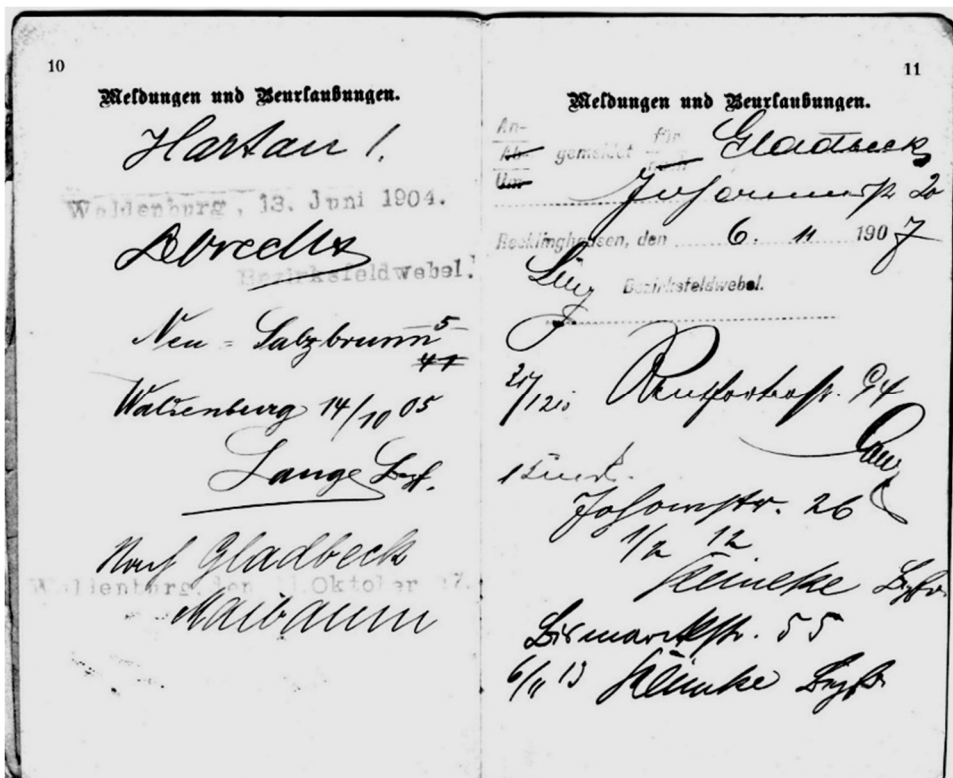 10
Meldungen und Beurlaubungen.
Hartau 1.
Waldenburg, 13. Juni 1904.
Bezirksfeldwebel.
Neu = Salzbrunn 5
Waldenburg 14/10 05
Lange Bzf.
Nach Gladbeck
Waldenburg, den Oktober 07.
Maibaum
11
Meldungen und Beurlaubungen.
An-
Ab- gemeldet für Gladbeck
Um- nach
Johannstr 20
Recklinghausen, den 6. 11 1907
Bezirksfeldwebel.
Rentforterstr. 94
1 Kind.
Johannstr. 26
1/2 12
Kleincke Bzfw.
Bismarckstr. 55
6/11 13 Kleincke Bzfw